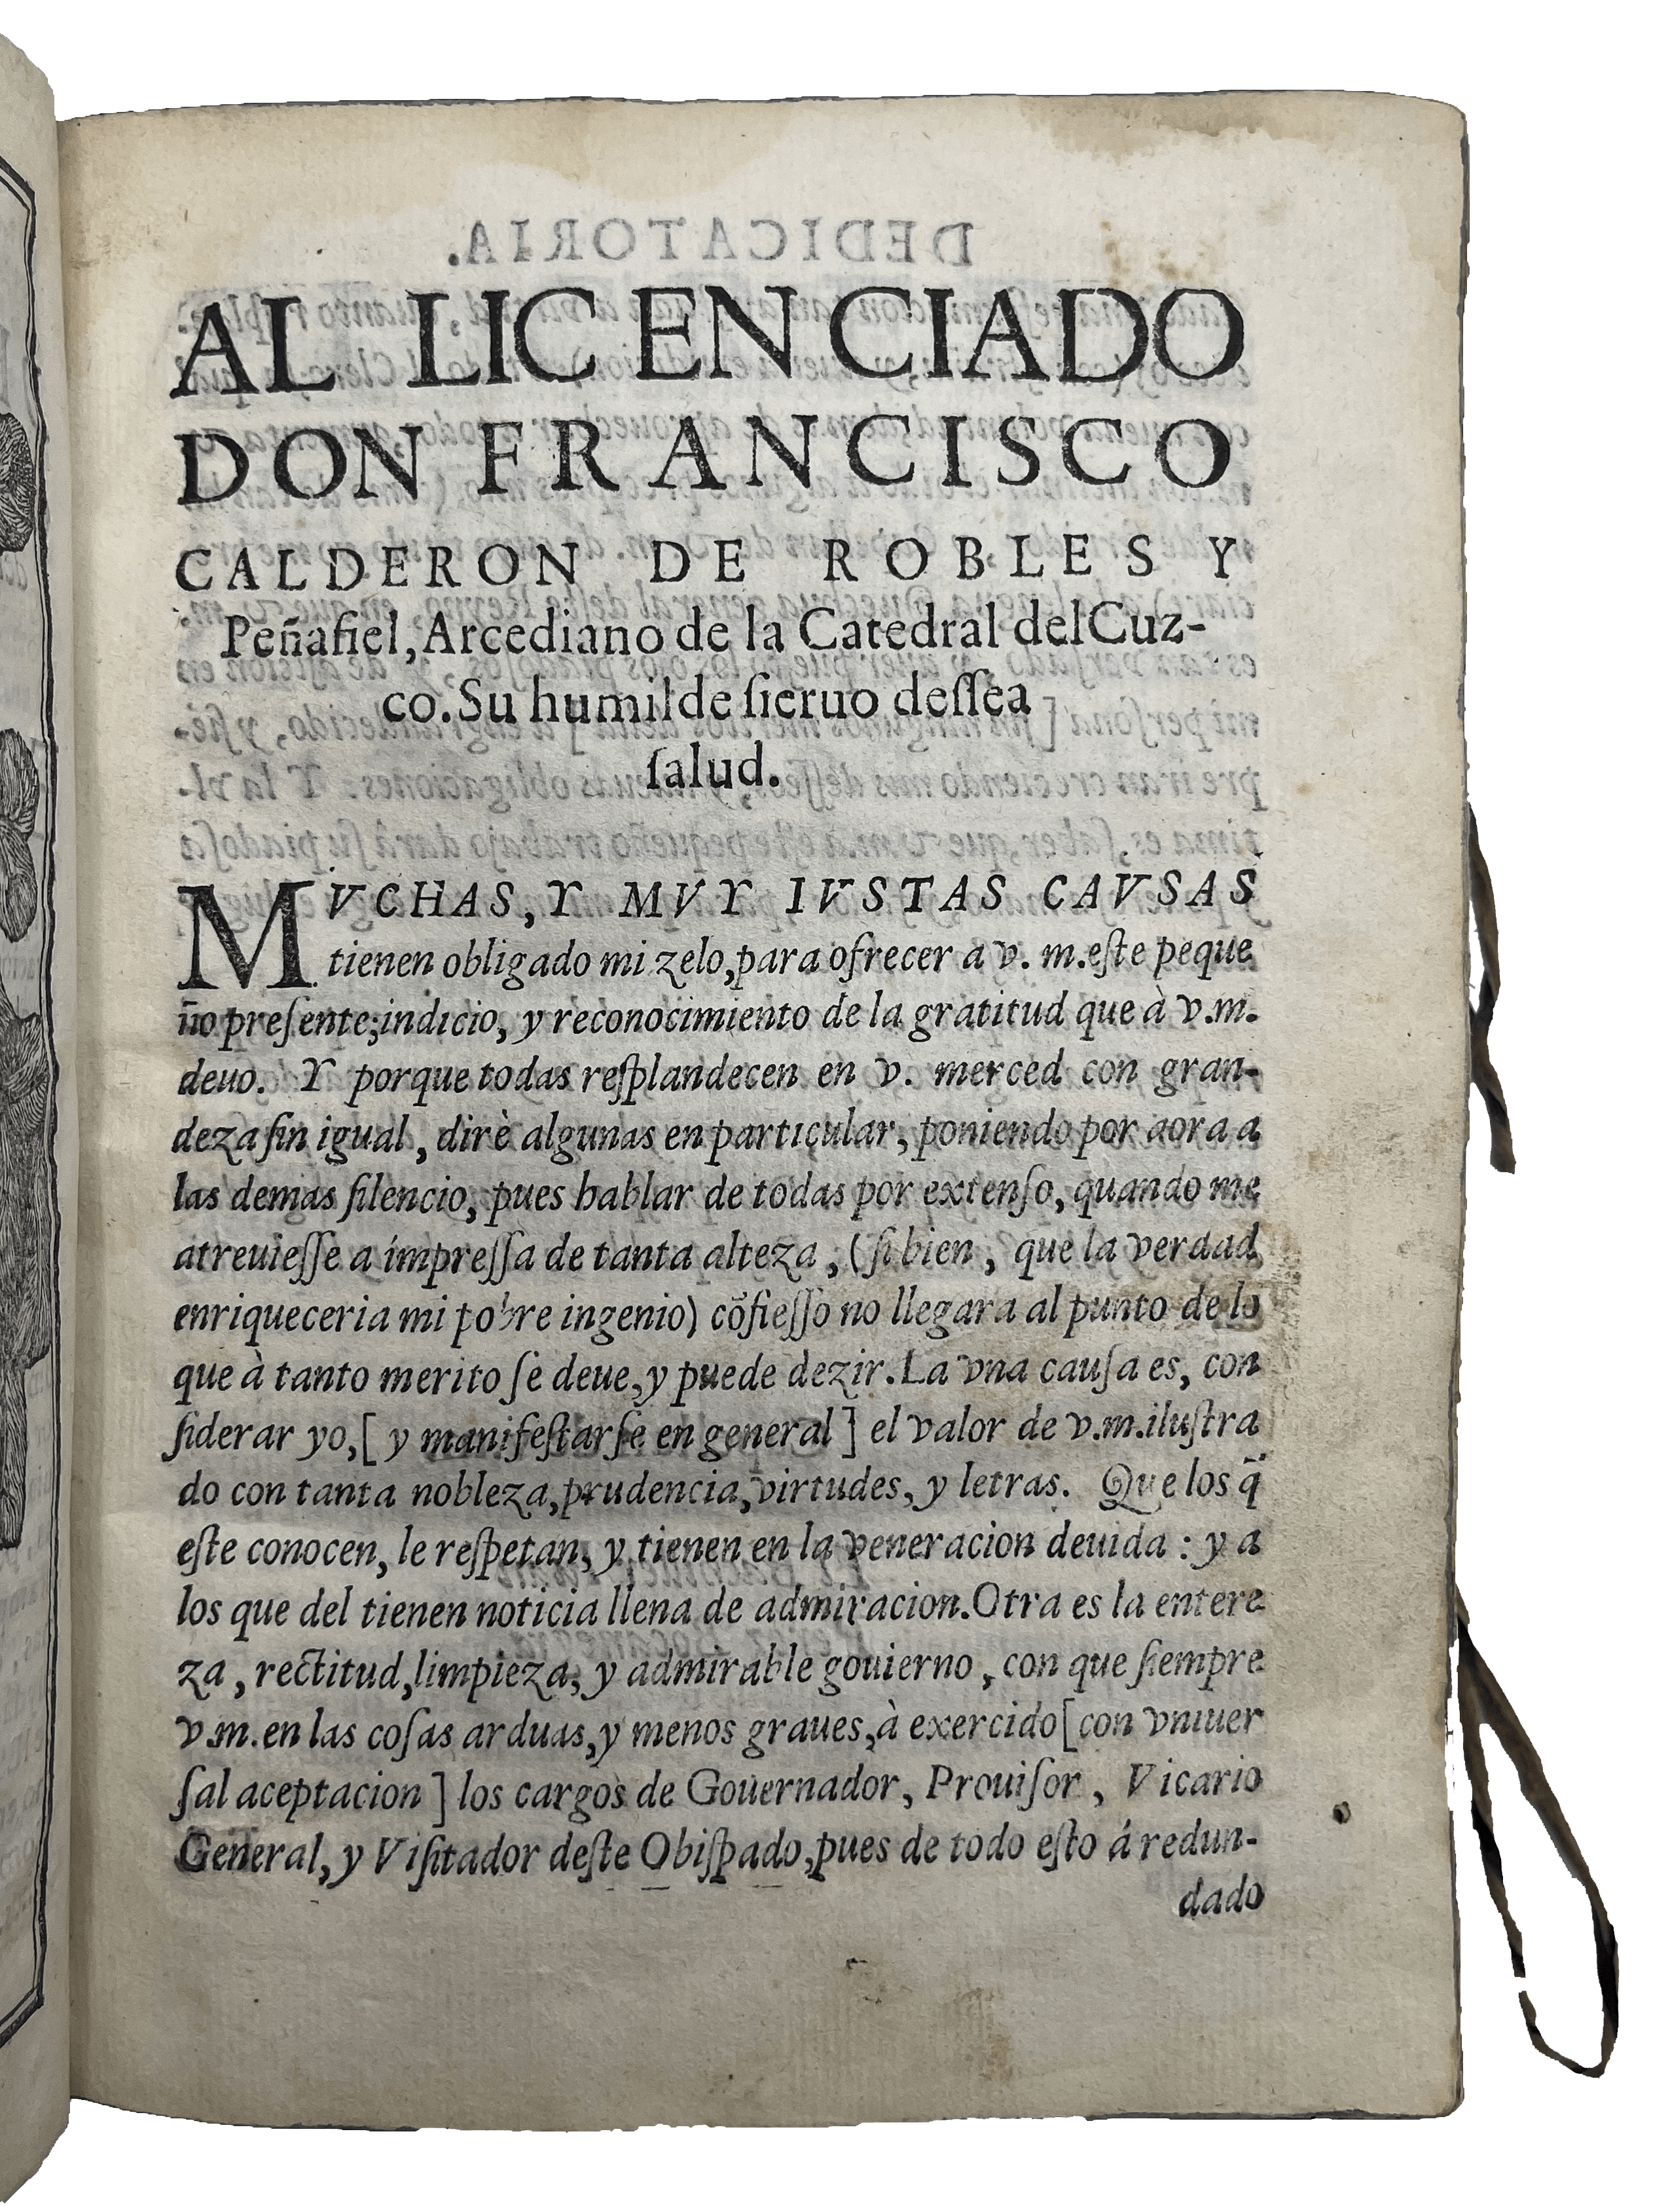 AL LICENCIADO
DON FRANCISCO
CALDERON DE ROBLES Y
Peñafiel, Arcediano de la Catedral del Cuz-
co. Su humilde ſieruo deſſea
ſalud.
MVCHAS, Y MVY IVSTAS CAVSAS
tienen obligado mi zelo, para ofrecer a v. m. eſte peque
ño preſente; indicio, y reconocimiento de la gratitud que à v.m.
deuo. Y porque todas reſplandecen en v. merced con gran-
deza ſin igual, dirè algunas en particular, poniendo por aora a
las demas ſilencio, pues hablar de todas por extenſo, quando me
atreuieſſe a impreſſa de tanta alteza, (ſi bien, que la verdad
enriqueceria mi pobre ingenio) cõfieſſo no llegara al punto de lo
que à tanto merito ſe deue, y puede dezir. La vna cauſa es, con
ſiderar yo, [ y manifeſtarſe en general ] el valor de v.m. iluſtra
do con tanta nobleza, prudencia, virtudes, y letras. Que los q̃
eſte conocen, le reſpetan, y tienen en la veneracion deuida : y a
los que del tienen noticia llena de admiracion. Otra es la entere
za, rectitud, limpieza, y admirable gouierno, con que ſiempre
v.m. en las coſas arduas, y menos graues, à exercido [con vniuer
ſal aceptacion ] los cargos de Gouernador, Prouiſor, Vicario
General, y Viſitador deſte Obiſpado, pues de todo eſto á redun-
dado